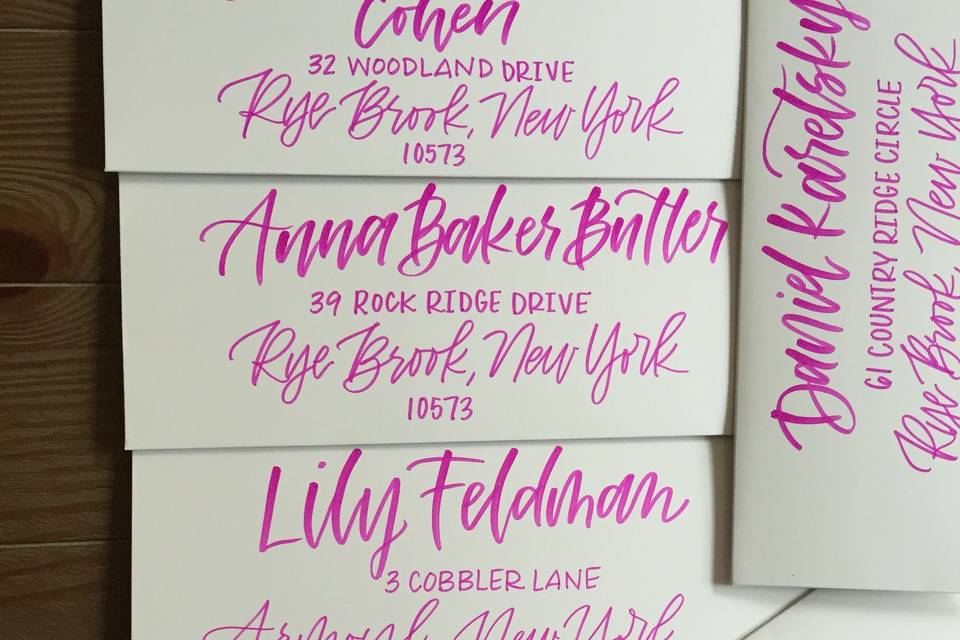 Cohen
32 WOODLAND DRIVE
Rye Brook, New York
10573
Anna Baker Butler
39 ROCK RIDGE DRIVE
Rye Brook, New York
10573
Lily Feldman
3 COBBLER LANE
Armonk, New York
Daniel Karetsky
61 COUNTRY RIDGE CIRCLE
Rye Brook, New York